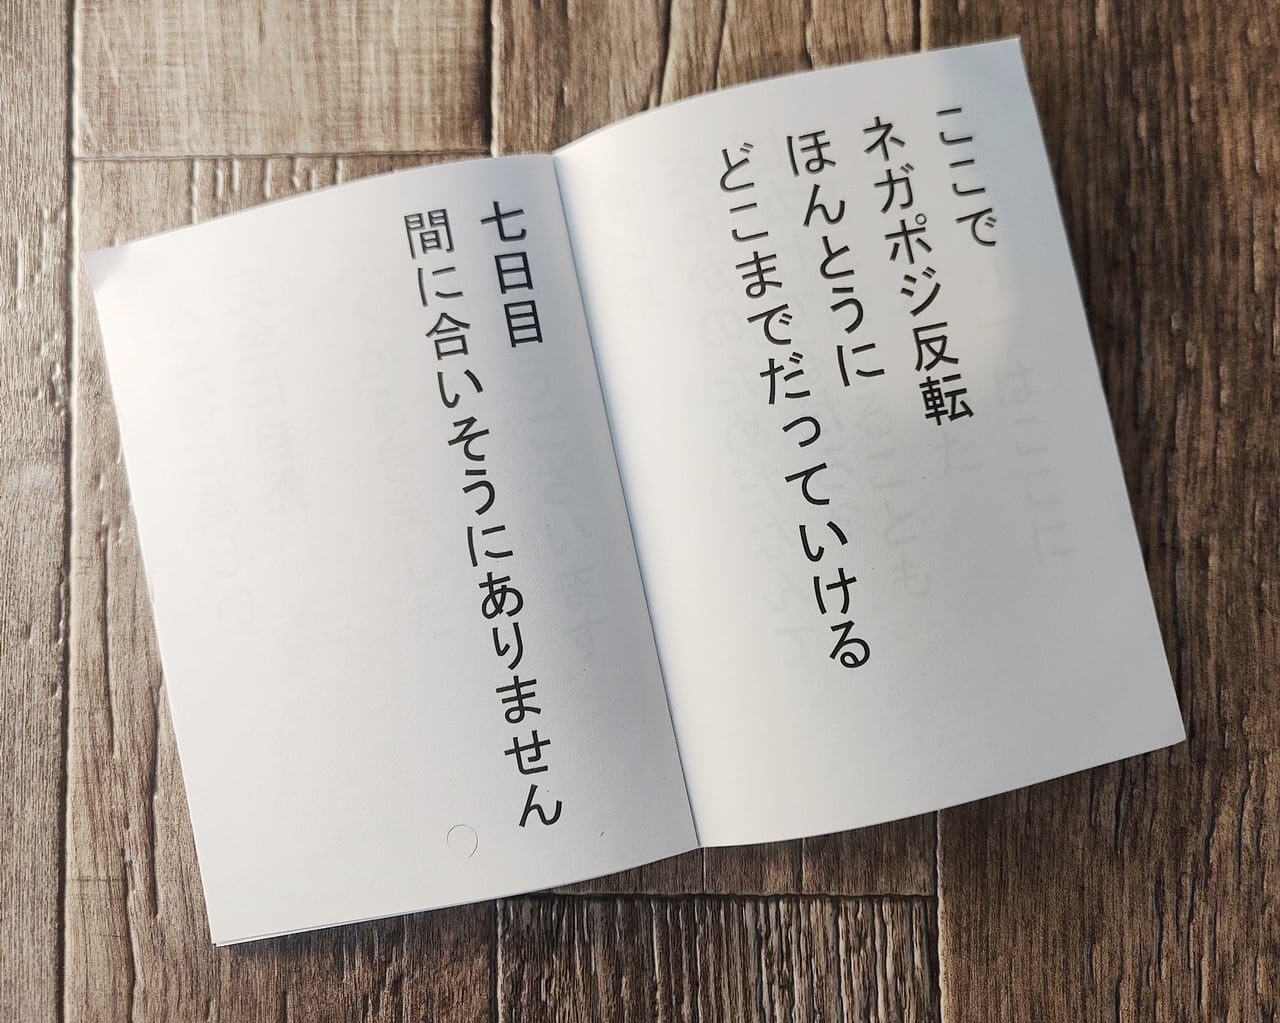 ここで
ネガポジ反転
ほんとうに
どこまでだっていける
七日目
間に合いそうにありません